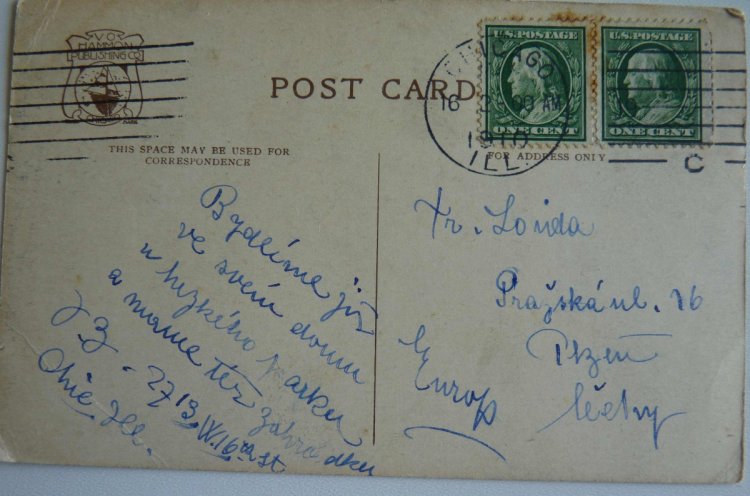 V.O.
HAMMON
PUBLISHING CO.
CHICAGO
POST CARD
CHICAGO
16
00 AM
1910
ILL.
U.S. POSTAGE
ONE CENT
U.S. POSTAGE
ONE CENT
C
THIS SPACE MAY BE USED FOR
CORRESPONDENCE
FOR ADDRESS ONLY
Bydlíme již
ve svém domu
u hezkého parku
a máme též zahrádku
2713 W. 16th St.
Chic. Ill.
Fr. Louda
Pražská ul. 16
Plzeň
Čechy
Europ